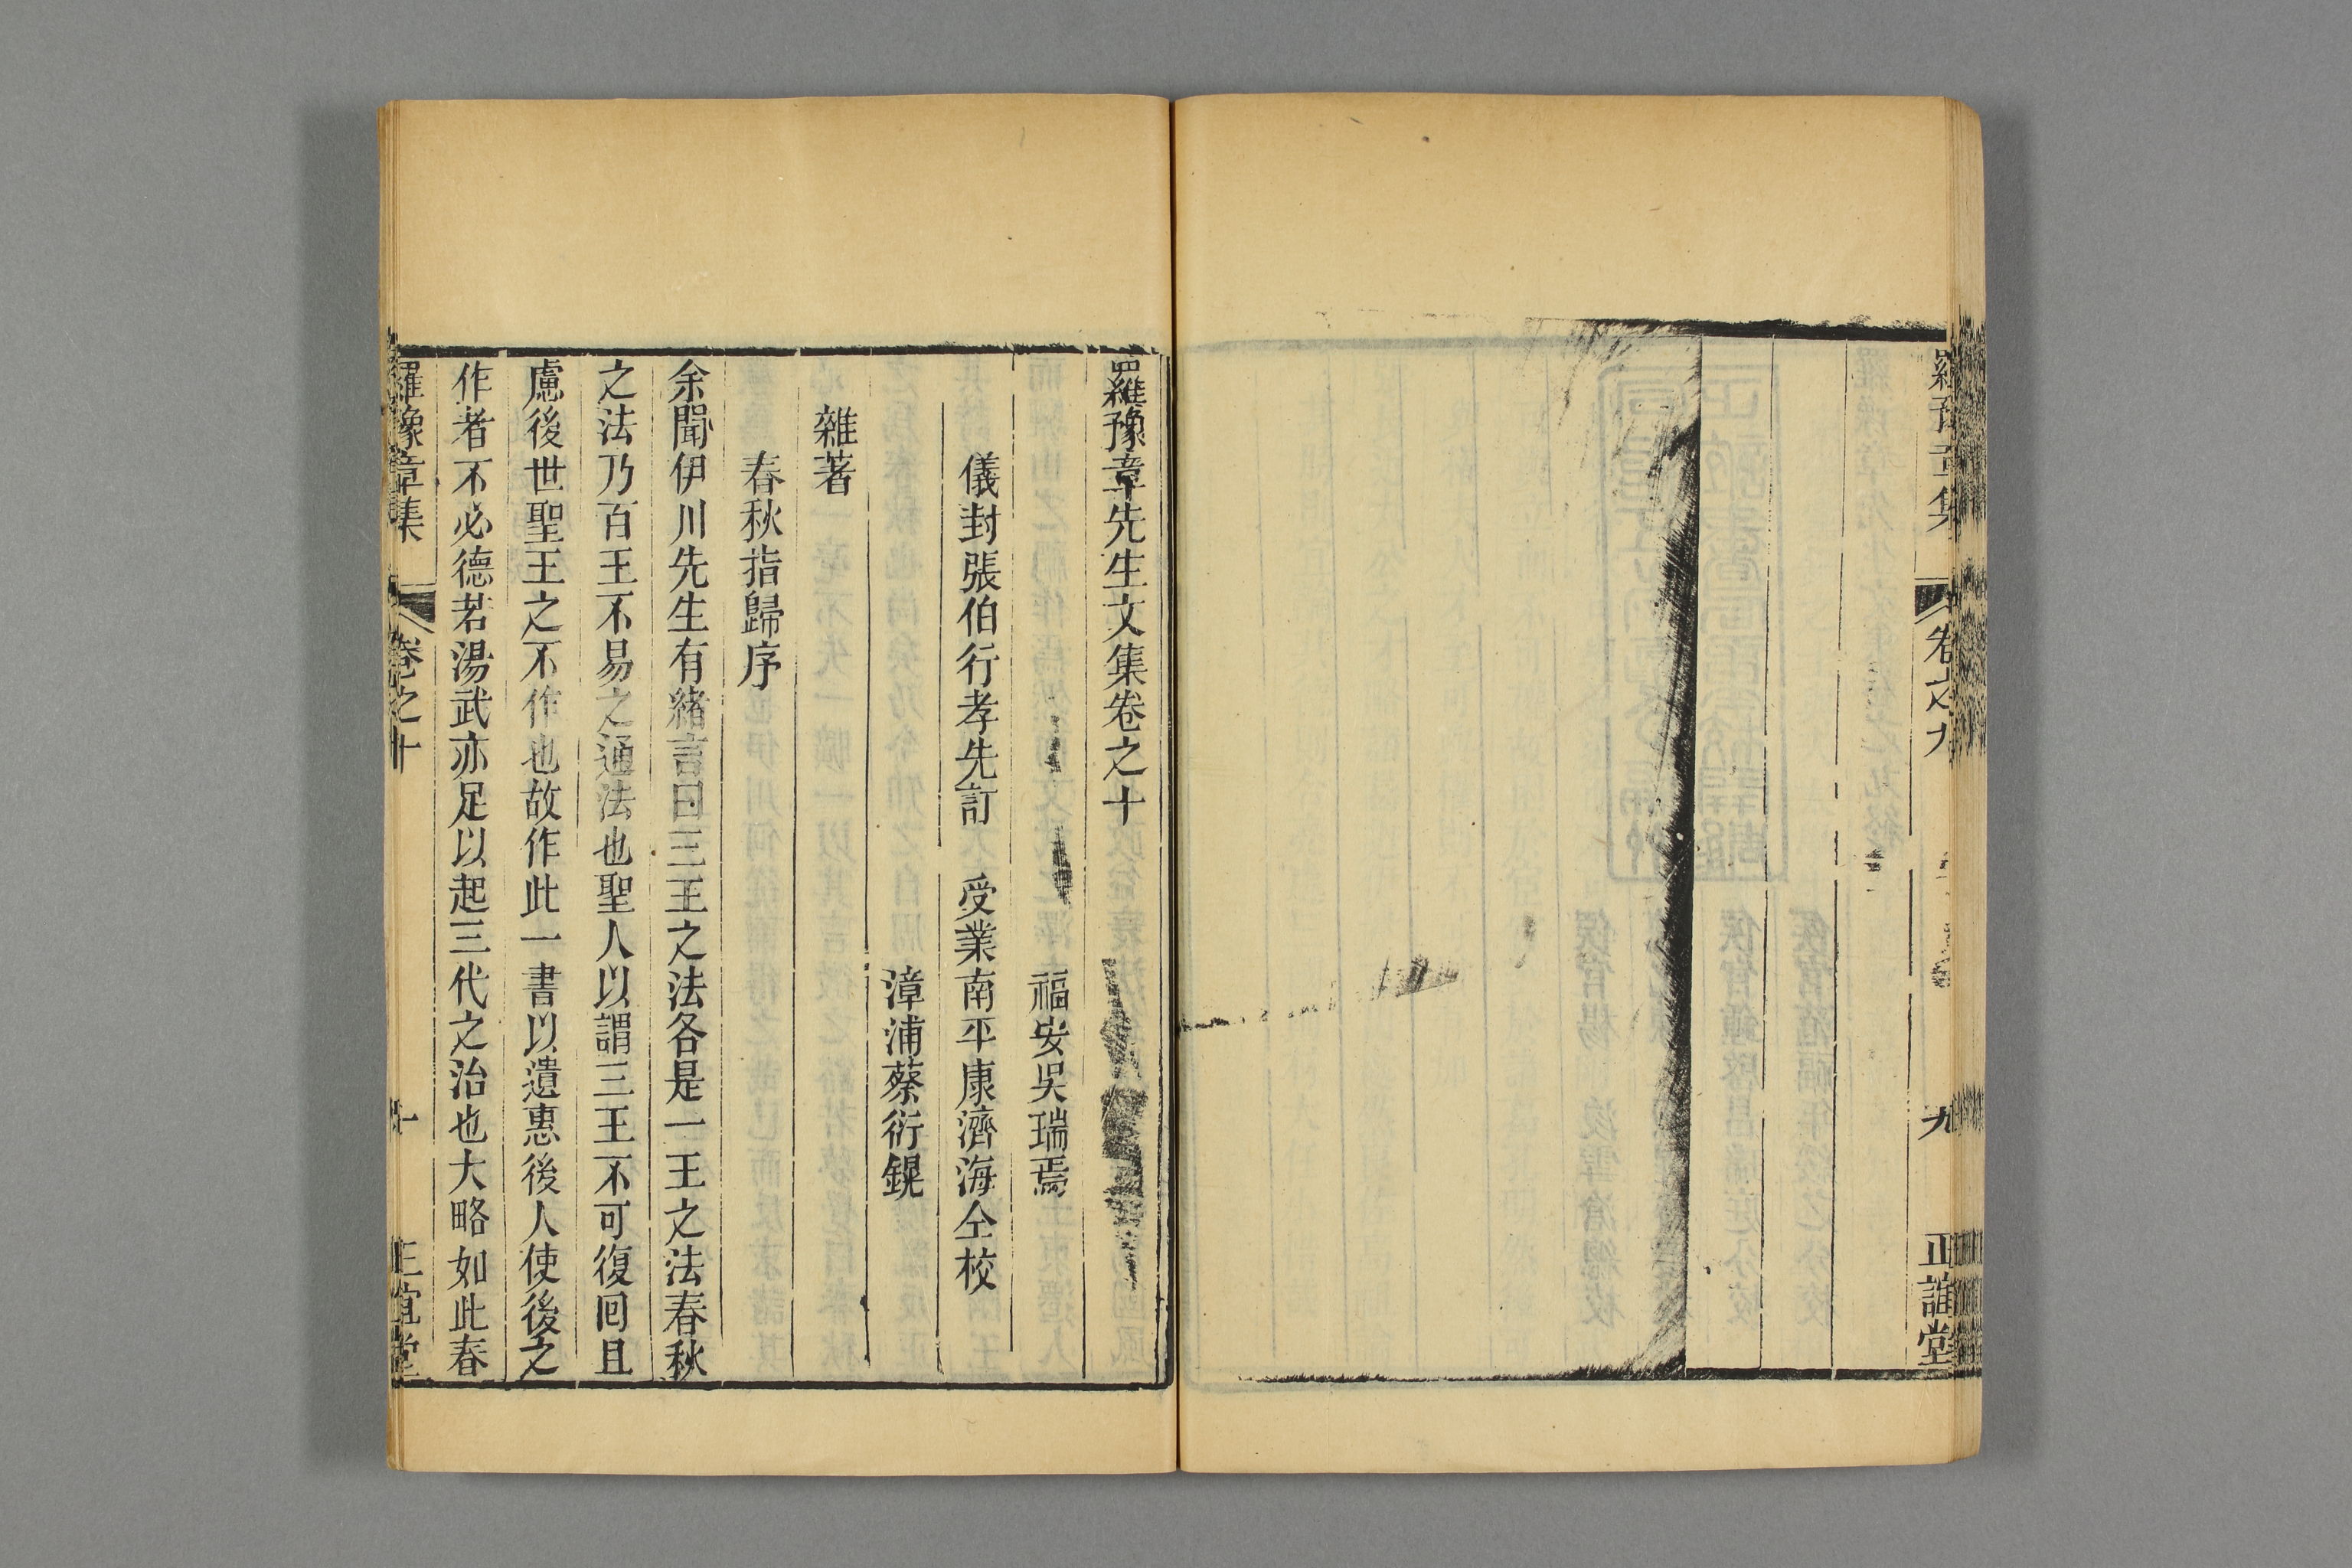 羅豫章集
卷之九
九
正誼堂
羅豫章先生文集卷之十
福安吳瑞焉
儀封張伯行孝先訂
受業南平康濟海仝校
漳浦蔡衍鎤
雜著
春秋指歸序
余聞伊川先生有緒言曰三王之法各是一王之法春秋
之法乃百王不易之通法也聖人以謂三王不可復回且
慮後世聖王之不作也故作此一書以遺惠後人使後之
作者不必德若湯武亦足以起三代之治也大略如此春
羅豫章集
卷之十
一
正誼堂